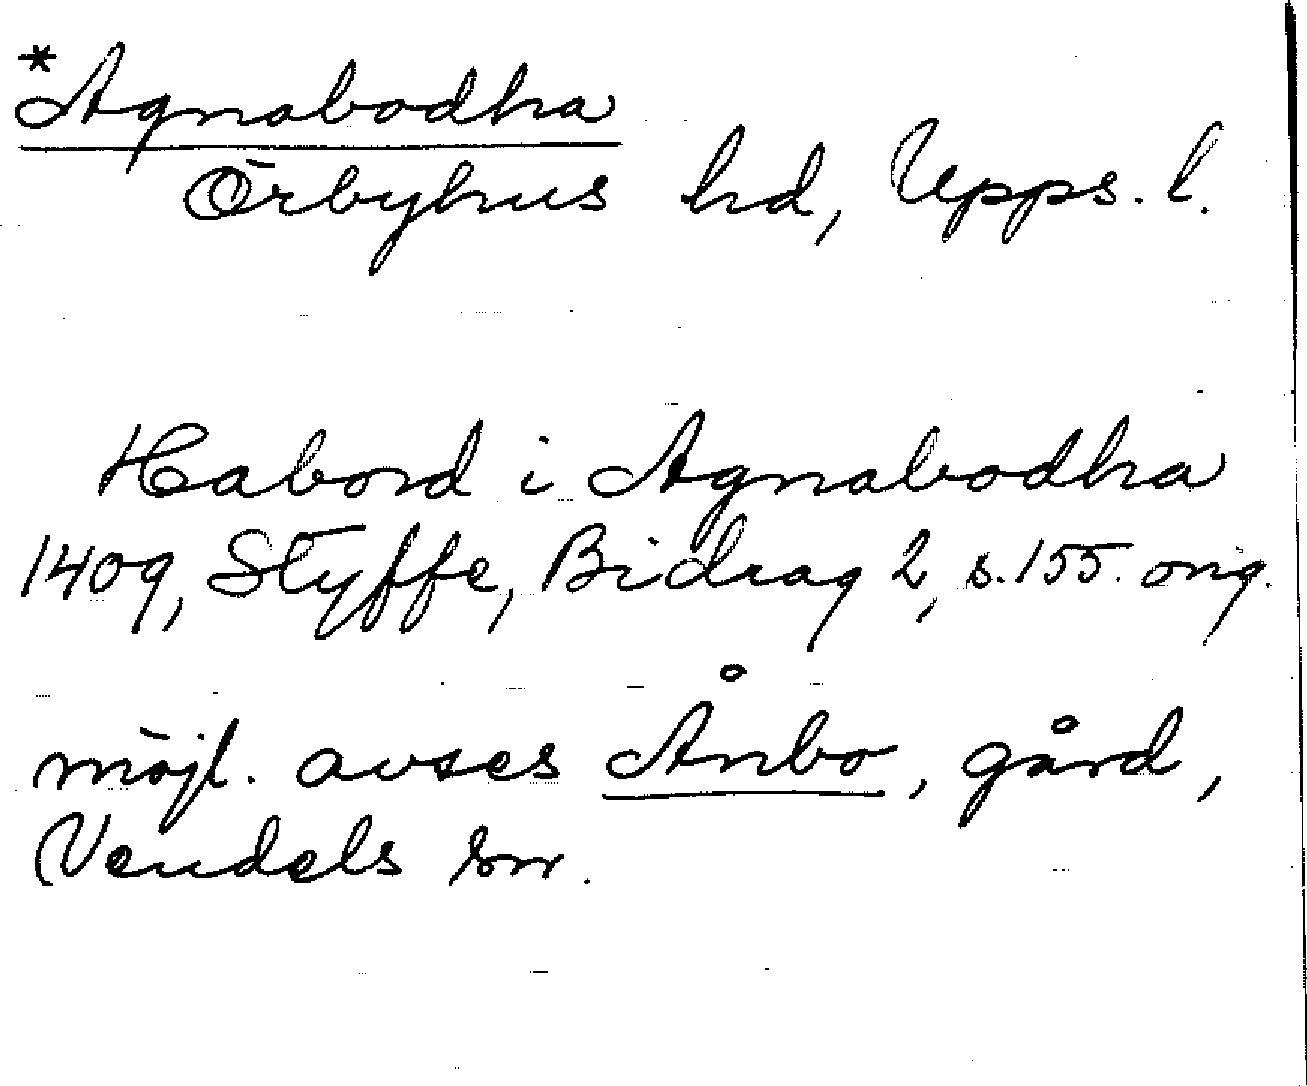 *Agnabodha
Örbyhus hd, Upps. l.
Habord i Agnabodha
1409, Styffe, Bidrag 2, s. 155. orig.
möjl. avses Ånbo, gård,
Vendels sn.